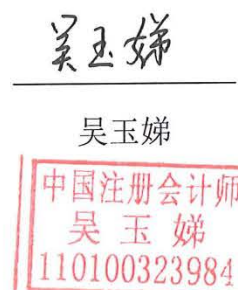 吴玉娣
吴玉娣
中国注册会计师
吴玉娣
110100323984